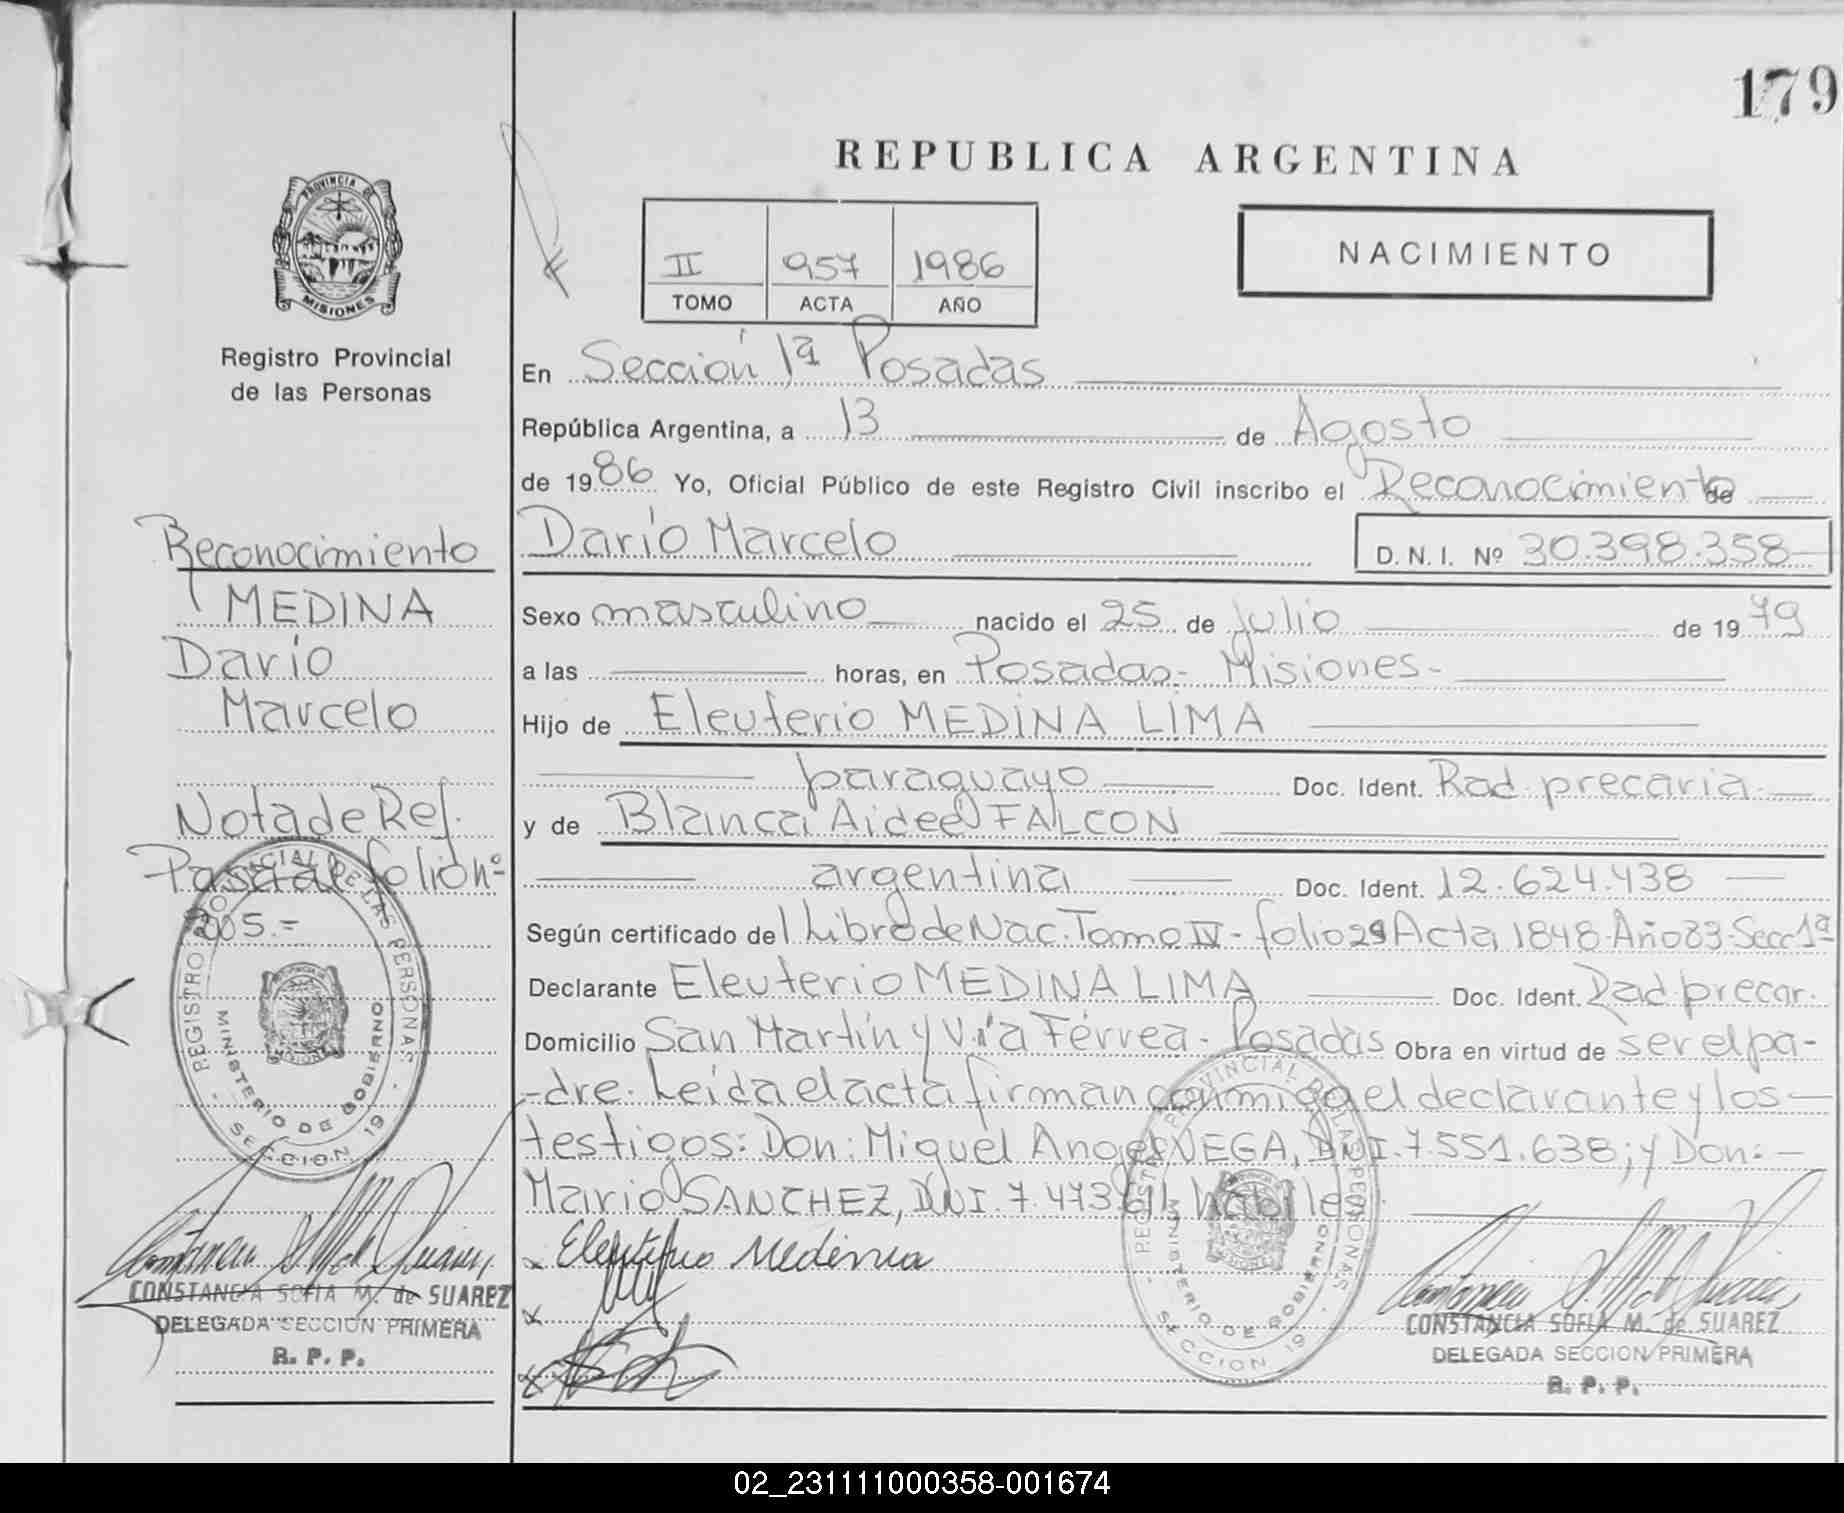 179
REPUBLICA ARGENTINA
PROVINCIA DE
MISIONES
Registro Provincial
de las Personas
II 957 1986
TOMO ACTA AÑO
NACIMIENTO
En Sección 1ª Posadas
República Argentina, a 13 de Agosto
de 1986 Yo, Oficial Público de este Registro Civil inscribo el Reconocimiento de
Darío Marcelo D.N.I. Nº 30.398.358
Sexo masculino nacido el 25 de Julio de 1979
a las horas, en Posadas - Misiones -
Hijo de Eleuterio MEDINA LIMA
paraguayo Doc. Ident. Rad. precaria.
y de Blanca Aidee FALCON
argentina Doc. Ident. 12.624.438
Según certificado del Libro de Nac. Tomo IV - folio 29 Acta 1848 - Año 83 - Secc 1ª
Declarante Eleuterio MEDINA LIMA Doc. Ident. Rad. precar.
Domicilio San Martín y Vía Férrea - Posadas Obra en virtud de ser el pa-
-dre. Leída el acta firman conmigo el declarante y los
testigos: Don: Miguel Angel VEGA, DNI. 7.551.638; y Don:
Mario SANCHEZ, DNI. 7.473.611, hábiles.
x Eleuterio Medina
x
x
CONSTANCIA SOFIA M. de SUAREZ
DELEGADA SECCION PRIMERA
R. P. P.
REGISTRO PROVINCIAL DE LAS PERSONAS
MINISTERIO DE GOBIERNO
SECCION 1ª
Reconocimiento
MEDINA
Darío
Marcelo
Nota de Ref.
Pasa al folio nº
205.-
REGISTRO PROVINCIAL DE LAS PERSONAS
MINISTERIO DE GOBIERNO
SECCION 1ª
CONSTANCIA SOFIA M. de SUAREZ
DELEGADA SECCION PRIMERA
R. P. P.
02_231111000358-001674